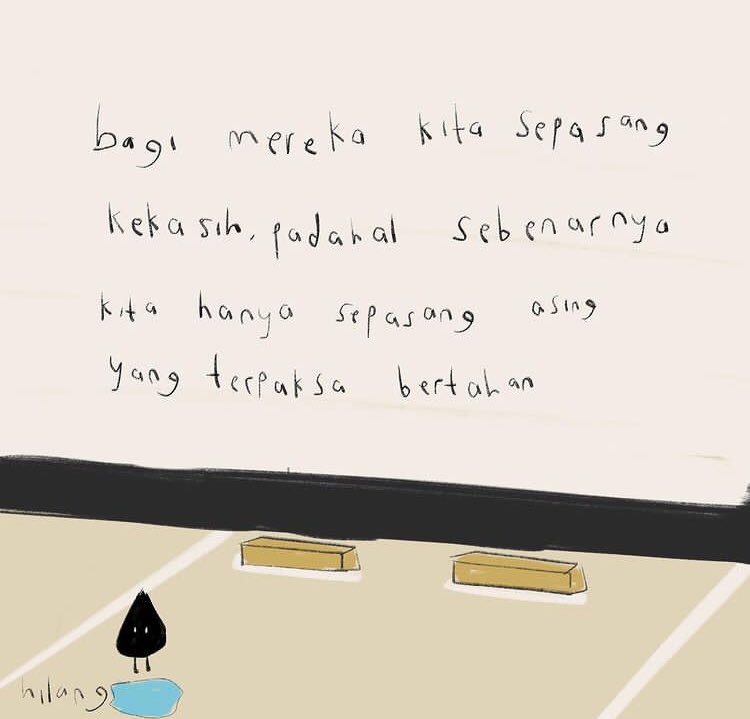 bagi mereka kita sepasang
kekasih, padahal sebenarnya
kita hanya sepasang asing
yang terpaksa bertahan
hilang